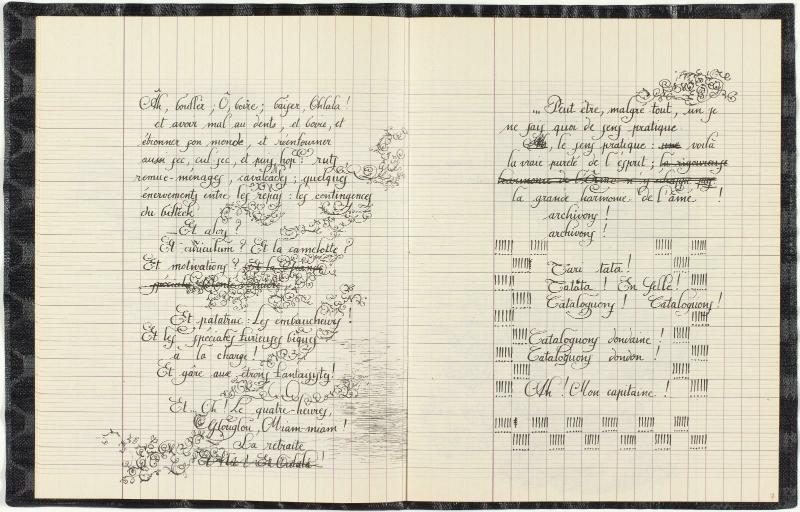 Ah, bouffer ; Ô, boire ; baiser, Ohlala !
et avoir mal au dents, et boire, et
étronner son monde, et rienfourner
aussi sec, cul sec, et puis hop : ruts
remue-ménages, cavalcades ; quelques
énervements entre les repas : les contingences
du bifteck
_ Et alors ?
Et curiculum ? Et la camelotte ?
Et motivations ? Et la
spéciale
Et patatrac : Les embaucheurs !
Et les spéciales furieuses bigues
à la charge !
Et gare aux étrons fantassytes !
Et... Oh ! Le quatre-heures,
Glouglou, Miam-miam !
La retraite
Et Ohlala !
... Peut être, malgré tout, un je
ne sais quoi de sens pratique
Ah, le sens pratique : une voilà
la vraie pureté de l'esprit ; la rigoureuse
harmonie de l'âme n'y échappe pas
la grande harmonie de l'âme !
archivons !
archivons !
Tari tata !
Tatata ! En selle !
Cataloguons ! Cataloguons !
Cataloguons dondaine !
Cataloguons dondon !
Ah ! Mon capitaine !
7